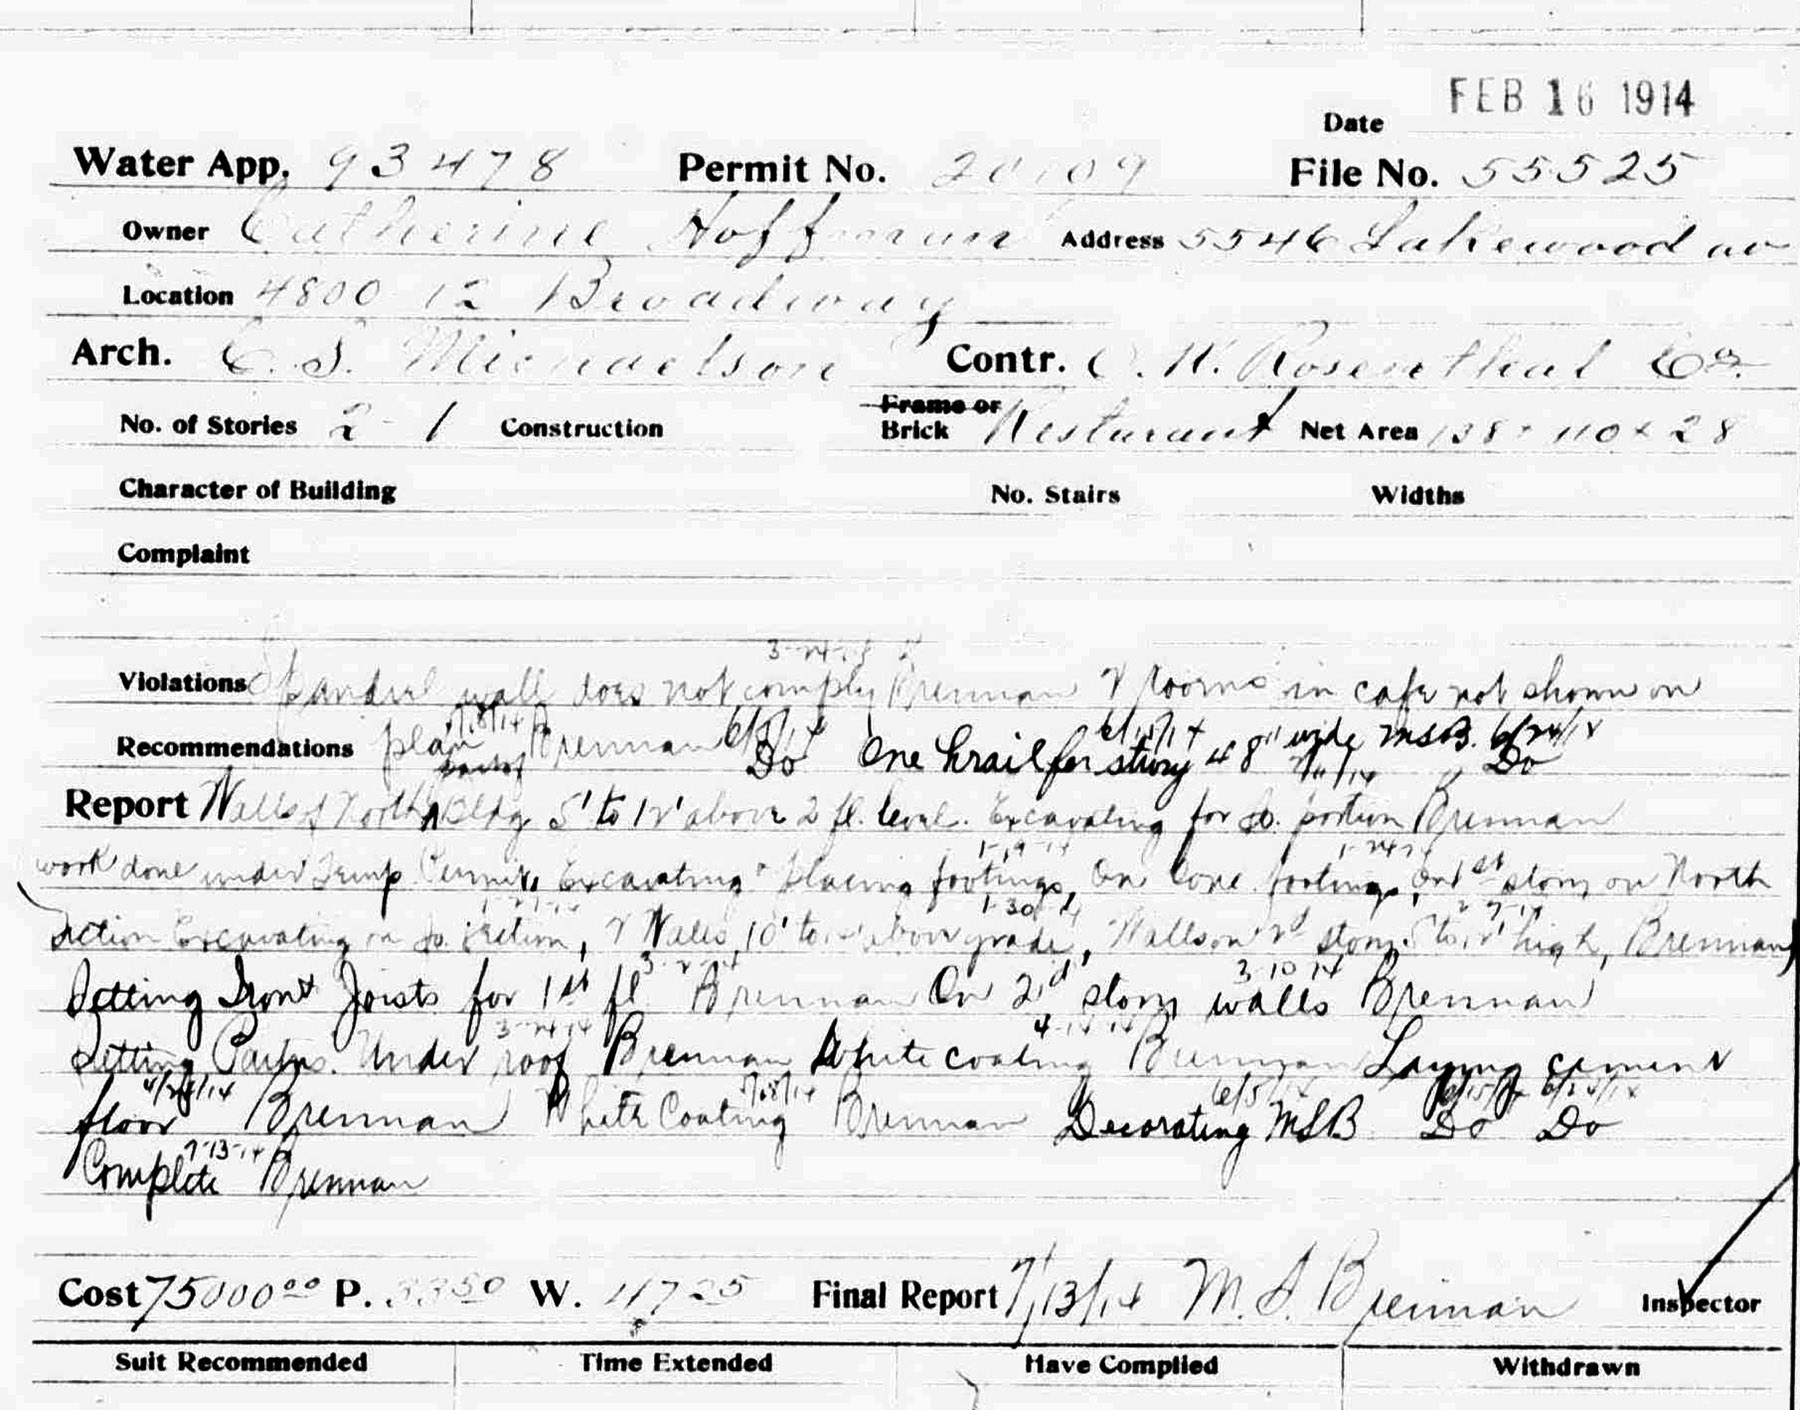 Date FEB 16 1914
Water App. 93478 Permit No. 20109 File No. 55525
Owner Catherine Hoffman Address 5546 Lakewood av
Location 4800-12 Broadway
Arch. C. S. Michaelson Contr. O. W. Rosenthal Co.
No. of Stories 2-1 Construction Frame or Brick Resturant Net Area 138 x 110 x 28
Character of Building No. Stairs Widths
Complaint
3-24-14
Violations Spandrel wall does not comply Brennan 2 rooms in cafe not shown on
Recommendations plan Brennan 6/5/14 Do 6/15/14 One hrail for story 48" wide MSB. 6/24/14 Do
part of
Report Walls of North Bldg 5' to 12' above 2 fl. level. Excavating for So. portion Brennan
work done under Temp Permit, Excavating & placing footings, On Conc. footings, On 1st story on North
1-30-14
Section Excavating on So. section, 2 Walls 10' to 12' above grade, Walls on 2d story 5' to 12' high, Brennan
Setting Iront Joists for 1st fl. 3-2-14 Brennan On 2d story walls 3-10-14 Brennan
Setting Partns. Under roof 3-24-14 Brennan White coating 4-14-14 Brennan Laying cement
floor 4/28/14 Brennan White Coating 5/18/14 Brennan Decorating 6/5/14 MSB 6/15/14 Do 6/25/14 Do
Complete 7-13-14 Brennan
Cost 75000.00 P. 33.50 W. 117.25 Final Report 7/13/14 M. S. Brennan Inspector
Suit Recommended Time Extended Have Complied Withdrawn